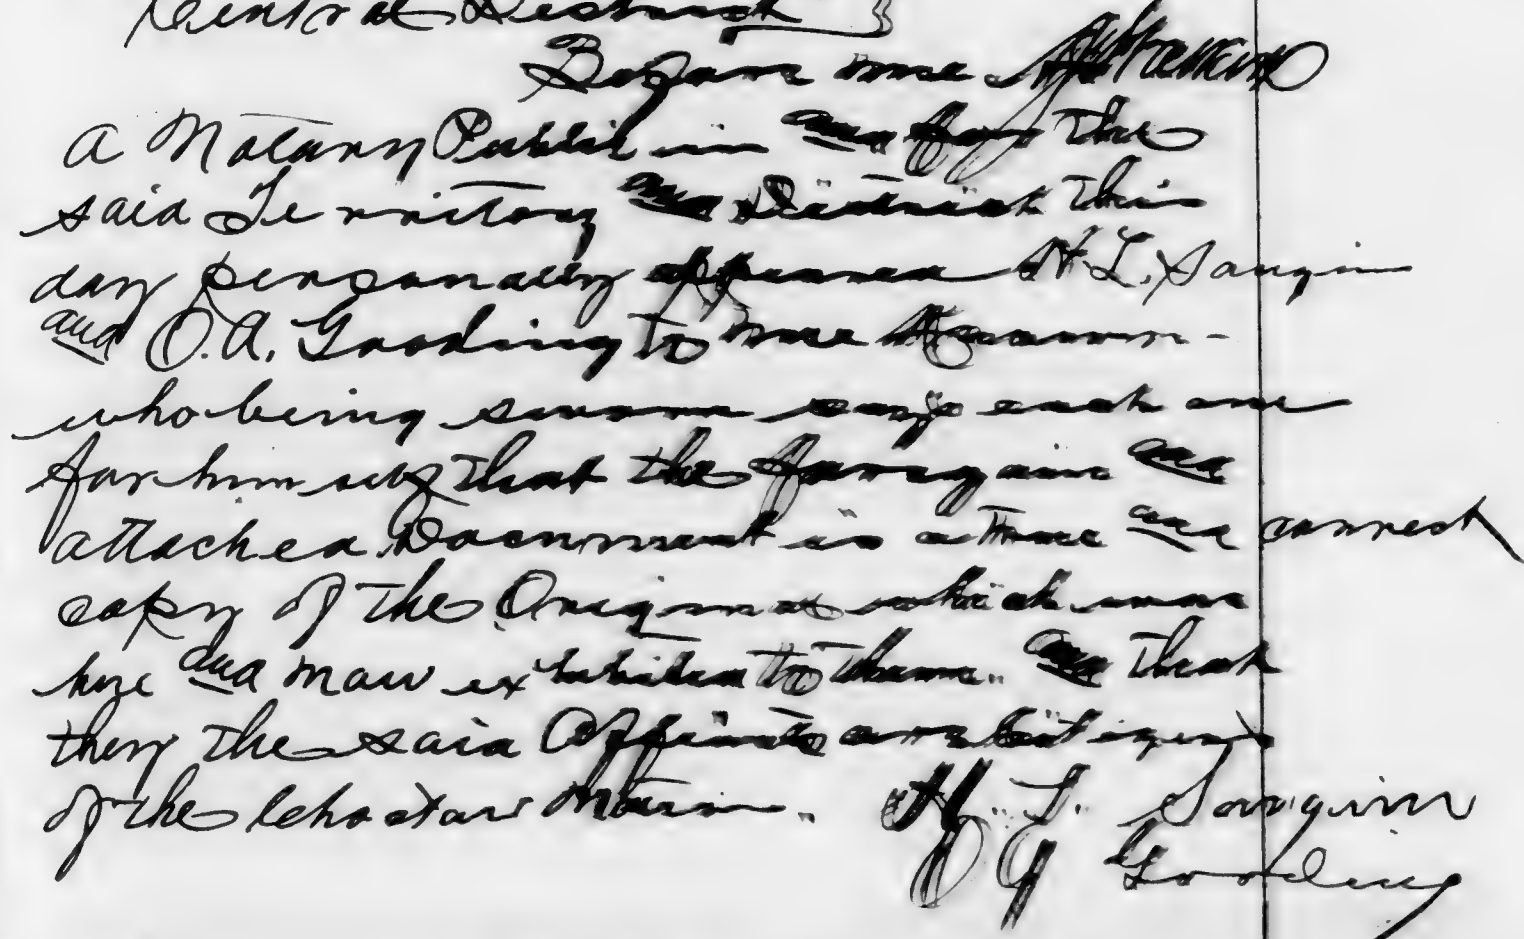 Central District }
Before me
a Notary Public in and for the
said Territory and District this
day personally appeared H. L. Sanguin
and O. A. Gooding to me known -
who being sworn says each one
for himself that the foregoin and
attached Document is a true and correct
copy of the Original which was
here and now exhibited to them. and that
they the said Affiants are citizens
of the Choctaw Nation. H. L. Sanguin
O A Gooding